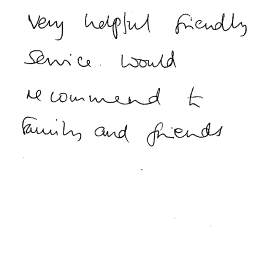 Very helpful friendly
Service. Would
recommend to
Family and friends